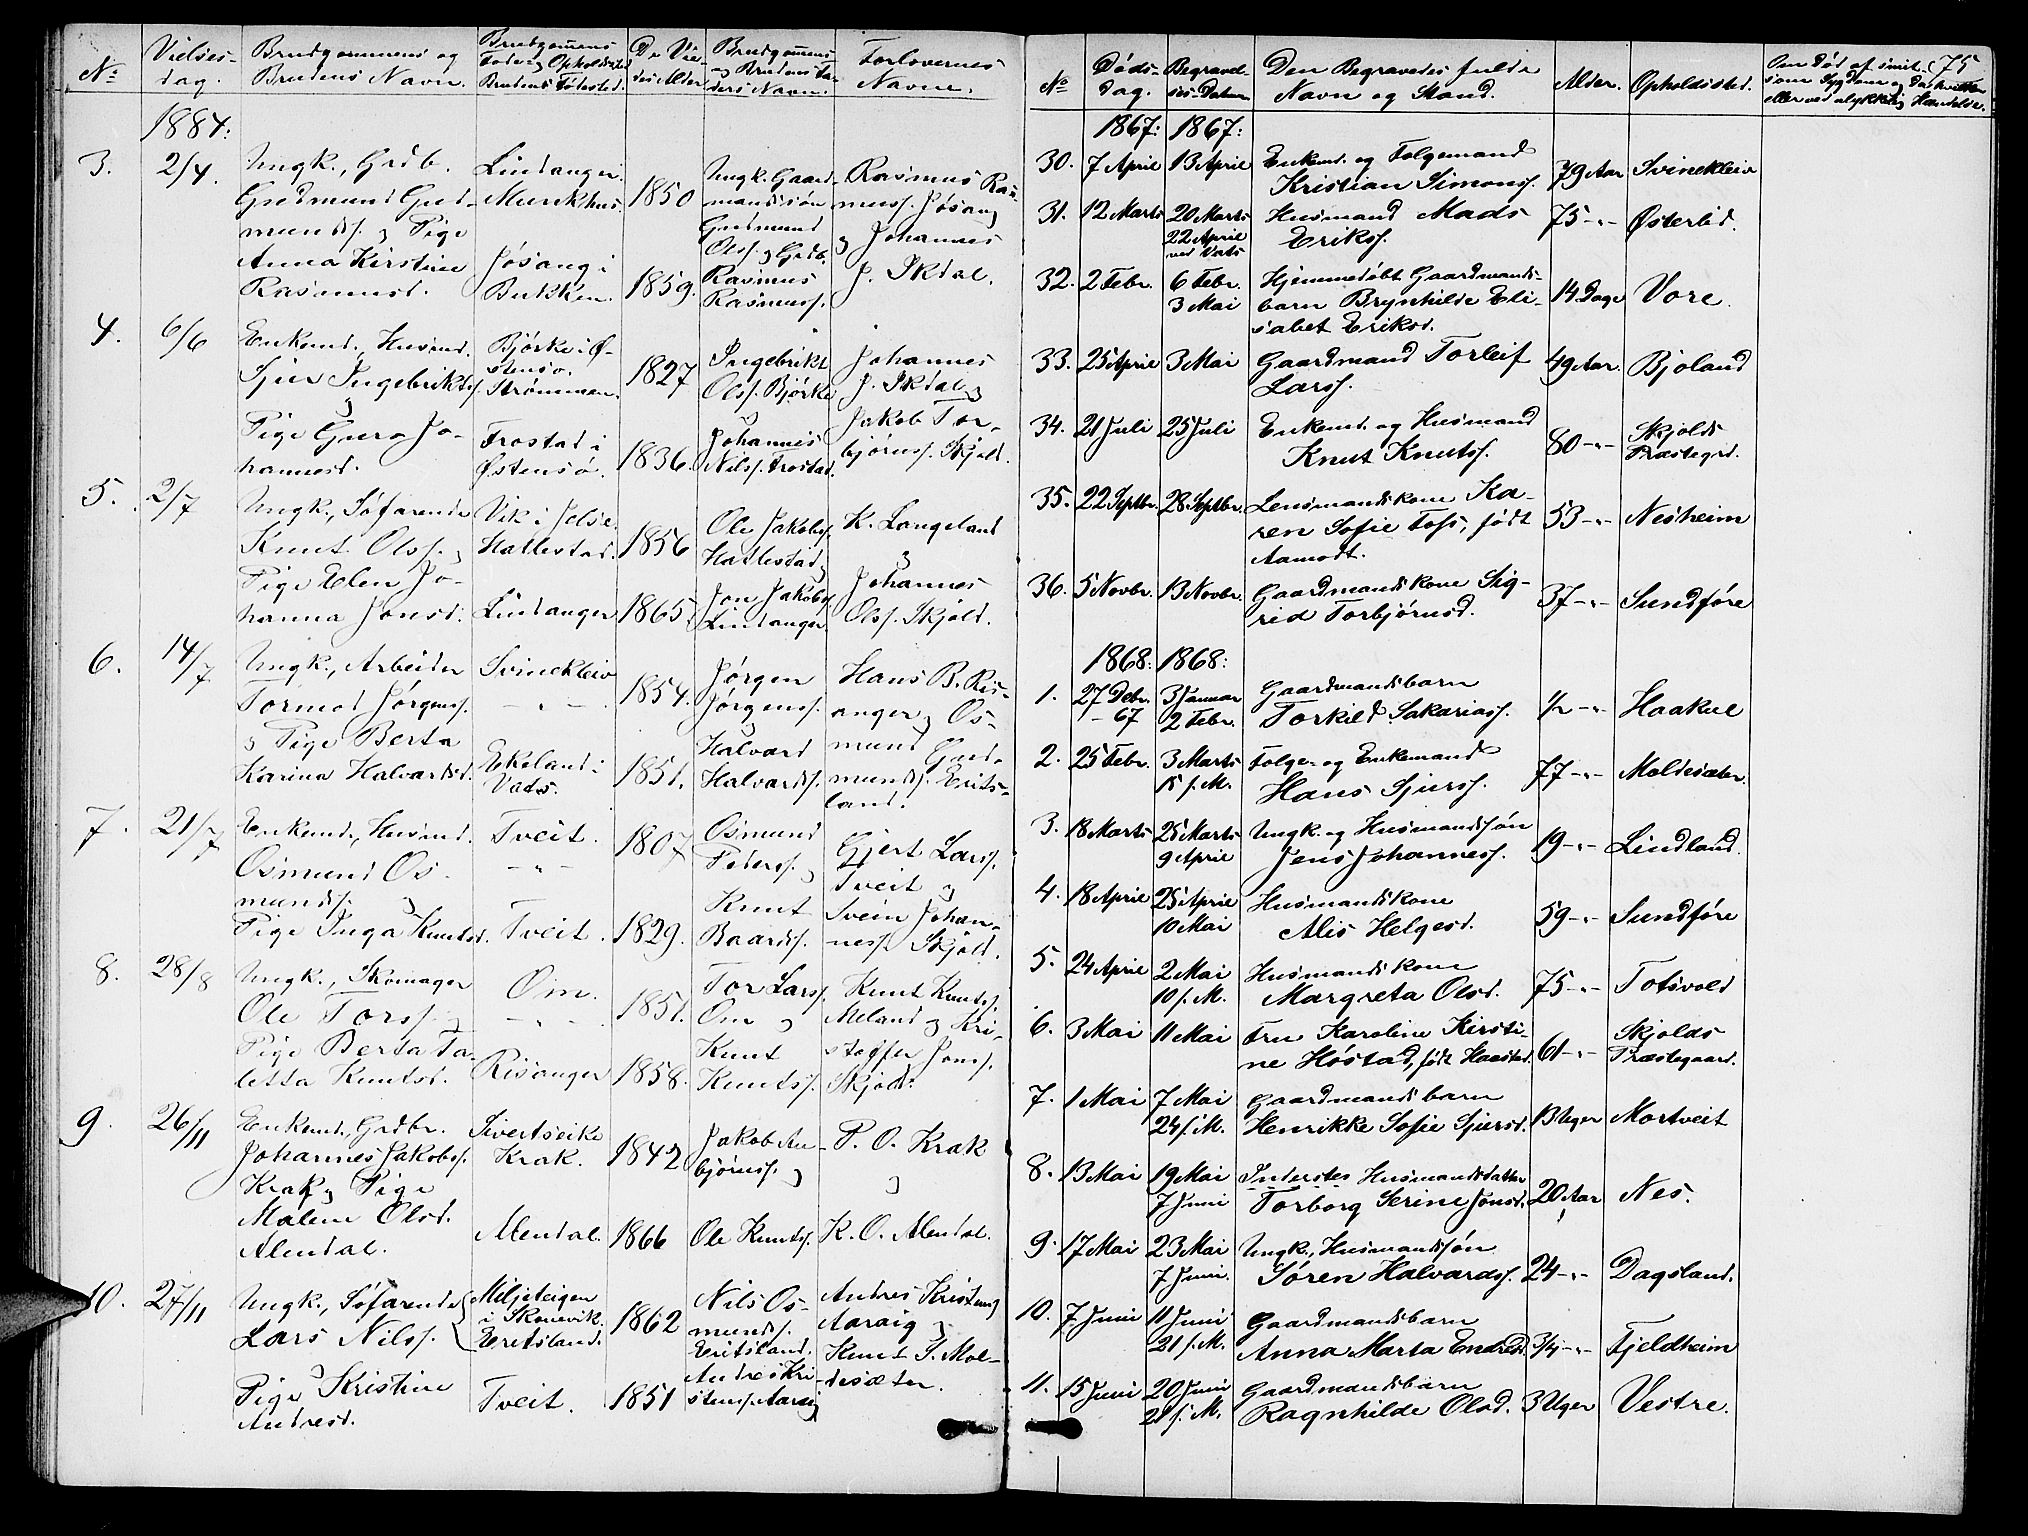 No
Vielses-
dag.
Brudgommens og
Brudens Navn.
Brudgomens
Føde og Opholdssted
Brudens Fødested.
De Vie-
des Alder
Brudgomens
og Brudens Fa-
ders Navn.
Forlovernes
Navne.
1884:
3.
2/4
Ungk., Grdb.
Gudmund Gud-
munds. og Pige
Anna Kirstine
Rasmusd.
Lindanger
Munkhus.
Jøsang i
Bukken.
1850
1859.
Ungk. Gaard-
mandssøn
Gudmund
Ols. og Grdb.
Rasmus
Rasmuss.
Rasmus Ras-
muss. Jøsang
og Johannes
J. Skdal.
4.
6/6
Enkemd., Husmd.
Sjur Ingebrikts.
og
Pige Guro Jo-
hannesd.
Bjørke i Ø-
stensø.
Strømmen.
Frostad i
Østensø.
1827
1836.
Ingebrikt
Ols. Bjørke
og
Johannes
Nils. Frostad.
Johannes
J. Skdal og
Jakob Tor-
bjørns. Skjold.
5.
2/7
Ungk., Søfarende
Knut Ols. og
Pige Elen Jo-
hanna Jonsd.
Vik i Jelse.
Hallestad.
Lindanger
1856
1865.
Ole Jakobs.
Hallestad og
Jon Jakobs.
Lindanger.
K. Langeland
og
Johannes
Ols. Skjold.
6.
14/7
Ungk., Arbeider
Tormod Jørgens.
og Pige Berta
Karina Halvardsd.
Svinekleiv
- " -
Ekeland i
Vats.
1854.
1851.
Jørgen
Jørgens.
Halvard
Halvards.
Hans B. Ris-
anger og Os-
mund Gud-
munds. Erits-
land.
7.
21/7
Enkemd., Husmd.
Osmund Os-
munds. og
Pige Inga Knutsd.
Tveit.
- " -
Tveit.
1807
1829.
Osmund
Peders. og
Knut
Baards.
Gjert Lars.
Tveit og
Svein Johan-
nes. Skjold.
8.
28/8
Ungk., Skomager
Ole Tors. og
Pige Berta Ta-
letta Knutsd.
Øin.
- " -
Risanger
1851.
1858.
Tor Lars.
Øin og
Knut
Knuts.
Knut Knuts.
Meland og Kri-
stoffer Jons.
Skjold.
9.
26/11
Enkemd., Grdbr.
Johannes Jakobs.
Krak og Pige
Malene Olsd.
Alendal.
Sivertseike
Krak.
Alendal.
1842
1866
Jakob An-
bjørns. og
Ole Knuts.
P. O. Krak
og
K. O. Alendal.
10.
27/11
Ungk., Søfarende
Lars Nils.
og
Pige Kristine
Andresd.
Miljeteigen
i Skonevik.
Eritsland.
Tveit.
1862
1851
Nils Os-
munds.
Eritsland.
Andres Kri-
stens. Aaraig
Andres Kristens.
Aaraig og
Knut S. Mol-
desæter.
No
Døds-
dag.
Begravel-
ses-Datum
Den Begravedes fulde
Navn og Stand.
Alder.
Opholdssted.
Om Død af smit-
som Sygdom og Da hvilken
eller ved ulykkelig Hændelse.
75
1867:
1867:
30.
7 April
13 April
Enkemd. og Folgemand
Kristian Simons.
79 Aar
Svinekleiv
31.
12 Marts
20 Marts
22 April
ved Vats
Husmand Mads
Eriks.
75 - " -
Østerlid.
32.
2 Febr.
6 Febr.
3 Mai
Hjemmedøbt Gaardmands-
barn Brynhilde Eli-
sabet Eriksd.
14 Dage
Vore.
33.
25 April
3 Mai
Gaardmand Torleif
Lars.
49 Aar.
Bjoland
34.
21 Juli
25 Juli
Enkemd. og Husmand
Knut Knuts.
80 - " -
Skjolds
Præstegrd.
35.
22 Septbr.
28 Septbr.
Lensmandskone Ka-
ren Sofie Foss, født
Aamodt.
53 - " -
Nesheim
36.
5 Novbr.
13 Novbr.
Gaardmandskone Sig-
rid Torbjørnsd.
37 - " -
Sundføre
1868:
1868:
1.
27 Debr.
- 67
3 Januar
2 Febr.
Gaardmandsbarn
Torkild Sakarias.
1/2 - " -
Haakul
2.
25 Febr.
3 Marts
15 s. M.
Folge- og Enkemand
Hans Sjurs.
77 - " -
Moldesæter.
3.
18 Marts
25 Marts
9 April
Ungk. og Husmandssøn
Jens Johannes.
19 - " -
Lindland.
4.
18 April
25 April
10 Mai
Husmandskone
Alis Helgesd.
59 - " -
Sundføre
5.
24 April
2 Mai
10 s. M.
Husmandskone
Margreta Olsd.
75 - " -
Totsvold
6.
3 Mai
11 Mai
Fru Karoline Kirsti-
ne Høstad, født Haasted.
61 - " -
Skjolds
Præstegaard.
7.
1 Mai
7 Mai
24 s. M.
Gaardmandsbarn
Henrikke Sofie Sjursd.
13 Uger
Mortveit
8.
13 Mai
19 Mai
7 Juni
Inderstes Husmandsdatter
Torborg Serine Jonsd.
20 Aar
Nes.
9.
17 Mai
23 Mai
7 Juni.
Ungk., Husmandssøn
Søren Halvards.
24 - " -
Dagsland.
10.
7 Juni
11 Juni
21 s. M.
Gaardmandsbarn
Anna Marta Endresd.
3/4 - " -
Fjeldheim
11.
15 Juni
20 Juni
21 s. M.
Gaardmandsbarn
Ragnhilde Olsd.
3 Uger
Vestre.